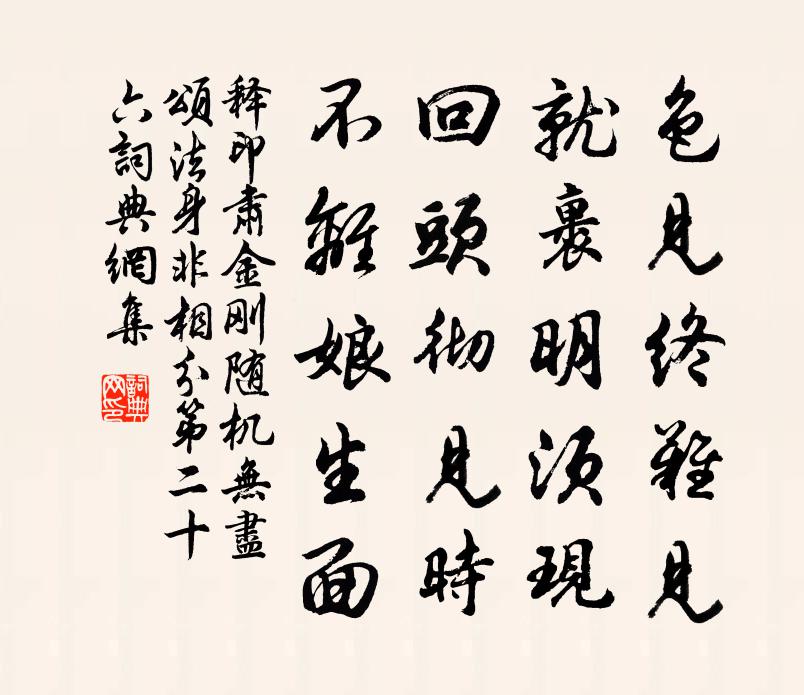 色見終難見
就裏明須現
回頭彻見時
不離娘生面
释印肃金刚随机無盡
頌法身非相分第二十
六詞典網集
詞典网印